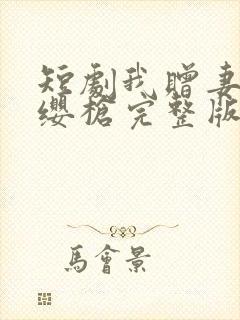 短劇我贈妻
纓槍完整版
馬會景